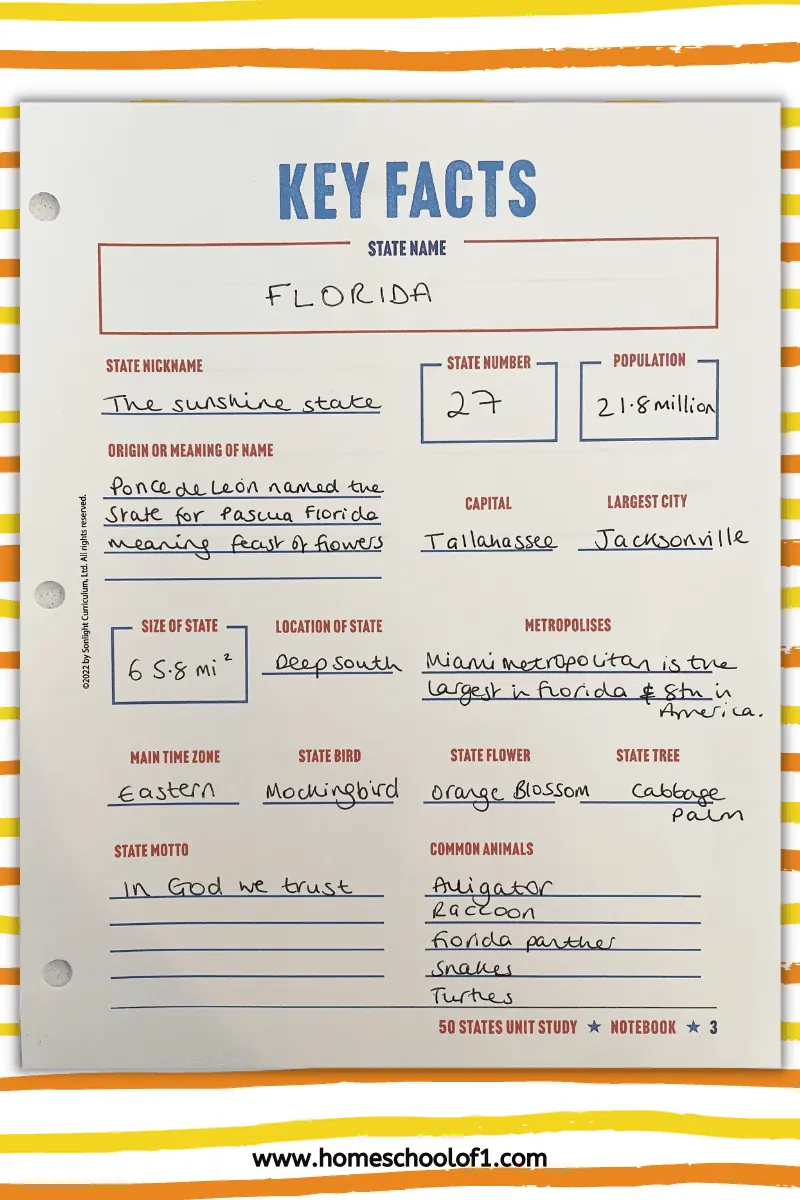 KEY FACTS
STATE NAME
FLORIDA
STATE NICKNAME
The sunshine state
STATE NUMBER
27
POPULATION
21.8 million
ORIGIN OR MEANING OF NAME
Ponce de León named the
State for Pascua Florida
meaning feast of flowers
CAPITAL
Tallahassee
LARGEST CITY
Jacksonville
©2022 by Sonlight Curriculum, Ltd. All rights reserved.
SIZE OF STATE
65.8 mi²
LOCATION OF STATE
Deep south
METROPOLISES
Miami metropolitan is the
largest in florida & 8th in
America.
MAIN TIME ZONE
Eastern
STATE BIRD
Mockingbird
STATE FLOWER
Orange Blossom
STATE TREE
Cabbage
Palm
STATE MOTTO
in God we trust
COMMON ANIMALS
Alligator
Raccoon
florida panther
Snakes
Turtles
50 STATES UNIT STUDY ★ NOTEBOOK ★ 3
www.homeschoolof1.com